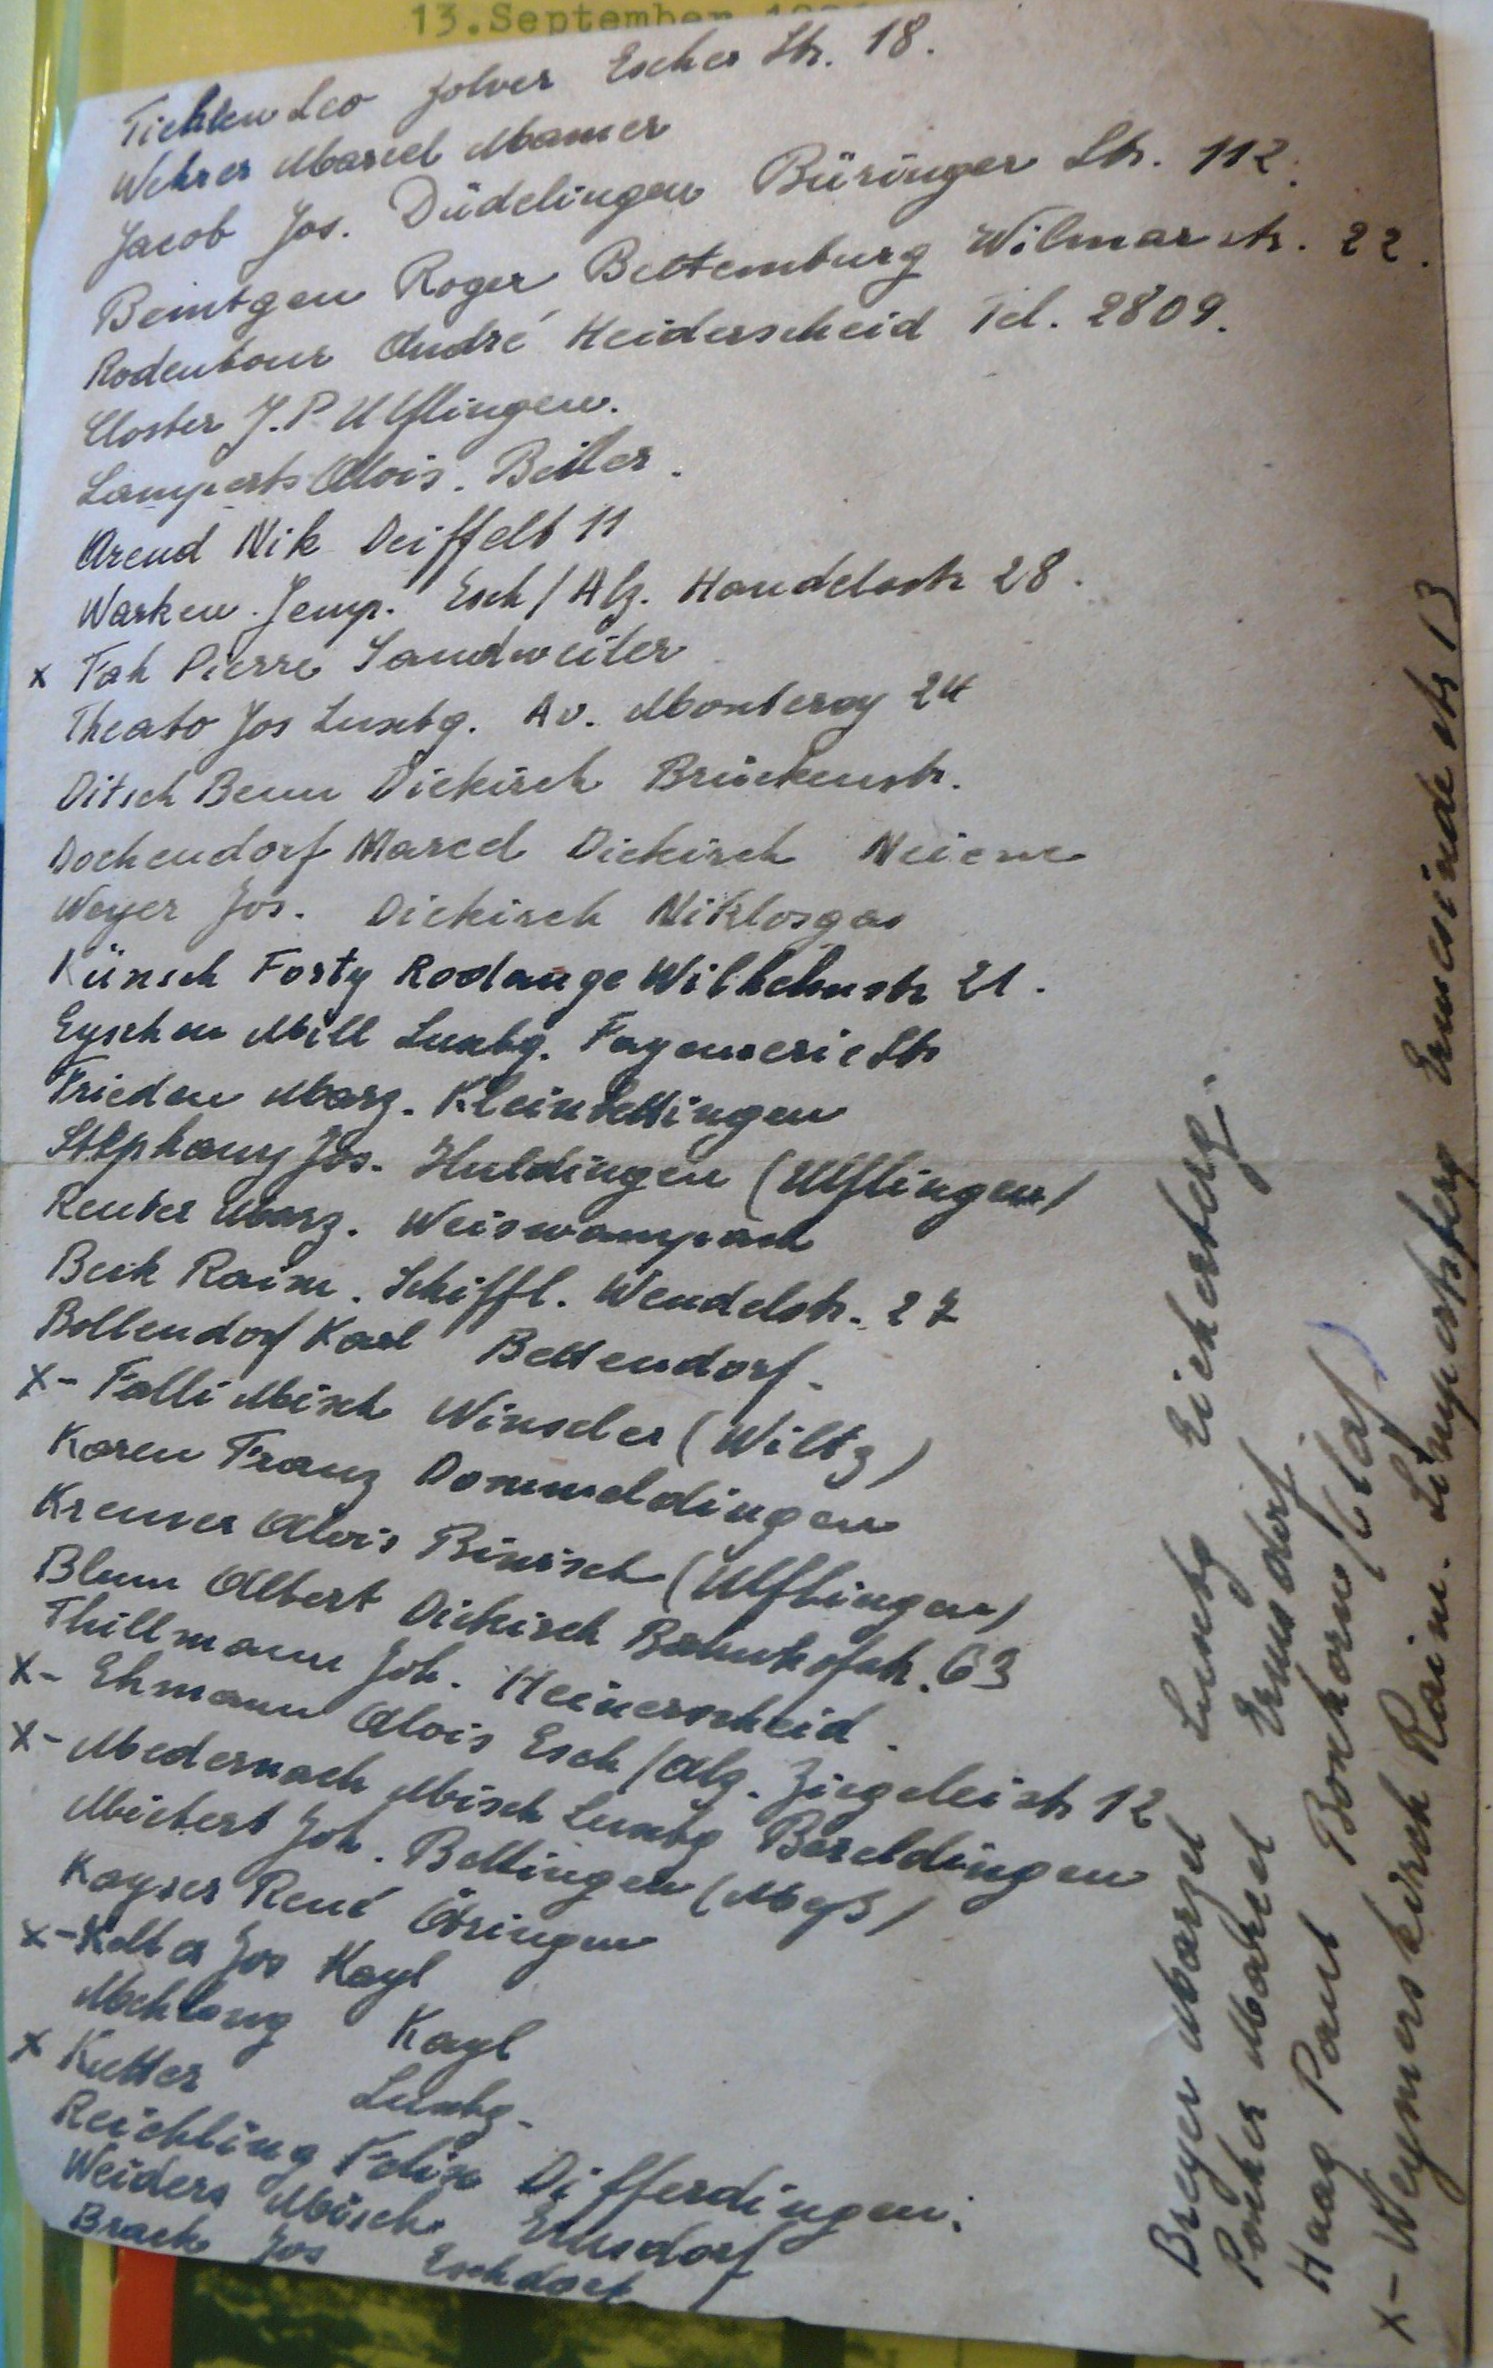 13. September
Tichlen Leo Zolver Escher Str. 18.
Wehrer Marcel Mamer
Jacob Jos. Düdelingen Büringer Str. 112.
Beintgen Roger Bettemburg Wilmar str. 22.
Rodenbour André Heiderscheid Tel. 2809.
Closter J.P. Ulflingen.
Lamperts Alois. Beiler.
Arend Nik Deiffelt 11
Warken. Jemp. Esch/Alz. Handelsstr 28.
x Fah Pierre Sandweiler
Theato Jos Luxbg. Av. Monterey 24
Ditsch Benn Diekirch Brückenstr.
Dochendorf Marcel Diekirch
Weyer Jos. Diekirch Niklosgas
Künsch Forty Rodange Wilhelmstr 21.
Eyschen Mill Luxbg. Fayencerie Str
Frieden Marz. Kleinbettingen
Stephany Jos. Huldingen (Ulflingen)
Reuter Marz. Weiswampach
Beck Raim. Schiffl. Wendelstr. 27
Bollendorf Karl Bettendorf.
x- Falli Misch Winseler (Wiltz)
Karen Franz Dommeldingen
Kremer Alois Binsfeld (Ulflingen)
Blum Albert Diekirch Bahnhofstr. 63
Thillmann Joh. Heinerscheid.
x- Ehmann Alois Esch/Alz. Ziegeleistr 12
x- Medernach Misch Luxbg Bereldingen
Michert Joh. Bettingen (Meß)
Kayser René Ötringen
x- Jos Kayl
Mehlang Kayl
x Kutter Luxbg.
Reichling Felix Differdingen.
Weiders Misch Ermsdorf
Brack Jos Eschdorf
Breyer Marzel Luxbg Eicherberg.
Marzel Ermsdorf
Haag Paul Boxhorn (Claf)
x- Weymerskirch Raim. Limpertsberg Ermesinde str 13